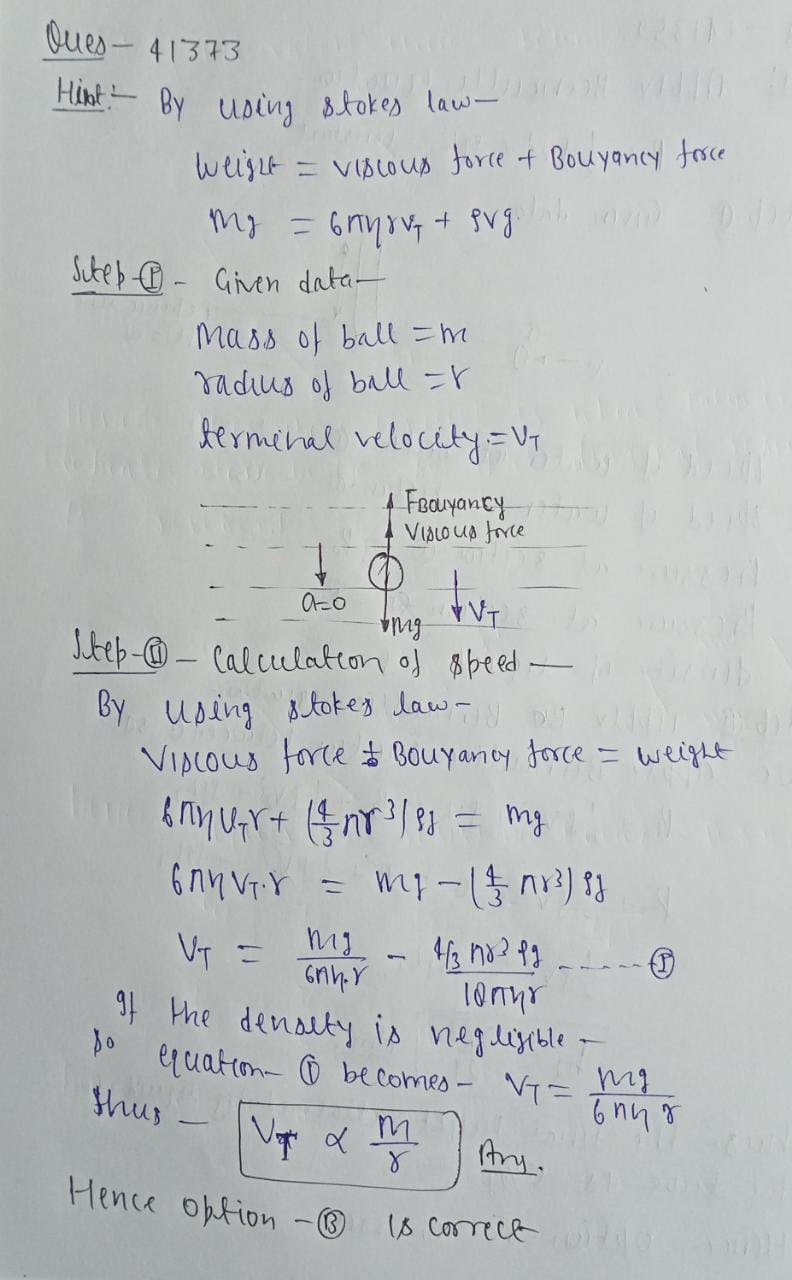 Ques - 41373
Hint:- By using stokes law -
Weight = viscous force + Bouyancy force
mg = 6πηrv_T + ρvg
Step-(I) - Given data -
Mass of ball = m
radius of ball = r
terminal velocity = V_T
F Bouyancy
Viscous force
a=0
V_T
mg
Step-(II) - Calculation of speed -
By using stokes law -
Viscous force + Bouyancy force = weight
6πηv_T r + (4/3 πr³) ρg = mg
6πηv_T.r = mg - (4/3 πr³) ρg
V_T = mg/6πη.r - 4/3 πr³ ρg/18πηr ------(I)
If the density is negligible -
so equation - (I) becomes - V_T = mg/6πηr
thus - V_T ∝ m/r Any.
Hence option - (B) is correct